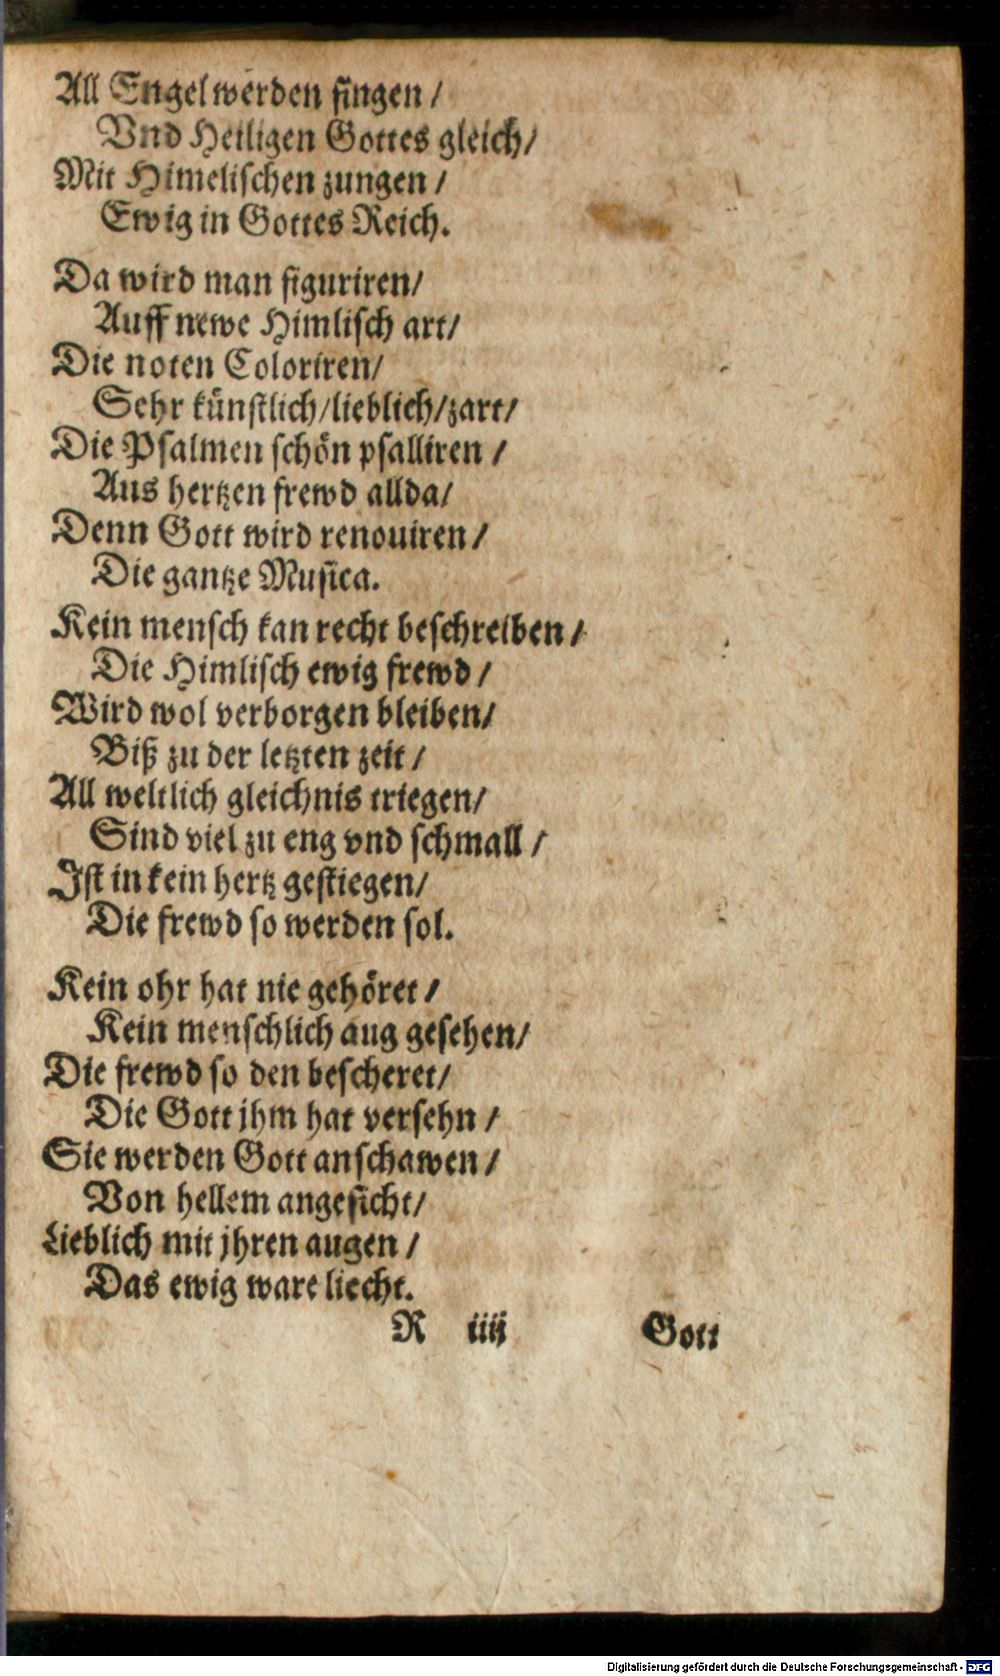 All Engel werden singen /
Vnd Heiligen Gottes gleich /
Mit Himelischen zungen /
Ewig in Gottes Reich.
Da wird man figuriren /
Auff newe Himlisch art /
Die noten Coloriren /
Sehr künstlich / lieblich / zart /
Die Psalmen schön psalliren /
Aus hertzen frewd allda /
Denn Gott wird renouiren /
Die gantze Musica.
Kein mensch kan recht beschreiben /
Die Himlisch ewig frewd /
Wird wol verborgen bleiben /
Biß zu der letzten zeit /
All weltlich gleichnis triegen /
Sind viel zu eng vnd schmall /
Ist in kein hertz gestiegen /
Die frewd so werden sol.
Kein ohr hat nie gehöret /
Kein menschlich aug gesehen /
Die frewd so den bescheret /
Die Gott jhm hat versehn /
Sie werden Gott anschawen /
Von hellem angesicht /
Lieblich mit jhren augen /
Das ewig ware liecht.
R iiij Gott
Digitalisierung gefördert durch die Deutsche Forschungsgemeinschaft - DFG